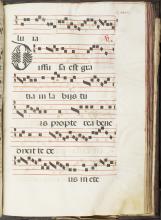 lu ia
Diffu sa est gra
tia in la bijs tu
is propte rea bene
dixit te de
us in ete